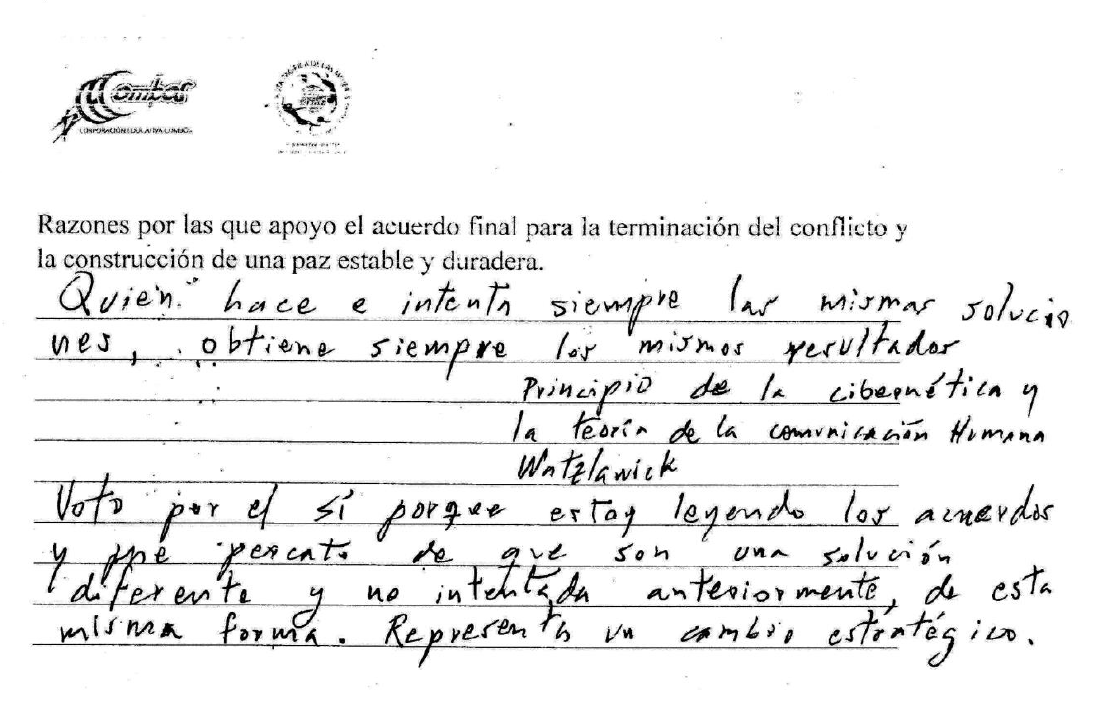 Combos
CORPORACIÓN EDUCATIVA COMBOS
Razones por las que apoyo el acuerdo final para la terminación del conflicto y
la construcción de una paz estable y duradera.
Quién hace e intenta siempre las mismas solucio
nes, obtiene siempre los mismos resultados
Principio de la cibernética y
la teoría de la comunicación Humana
Watzlawick
Voto por el sí porque estoy leyendo los acuerdos
y me percato de que son una solución
diferente y no intentada anteriormente, de esta
misma forma. Representa un cambio estratégico.